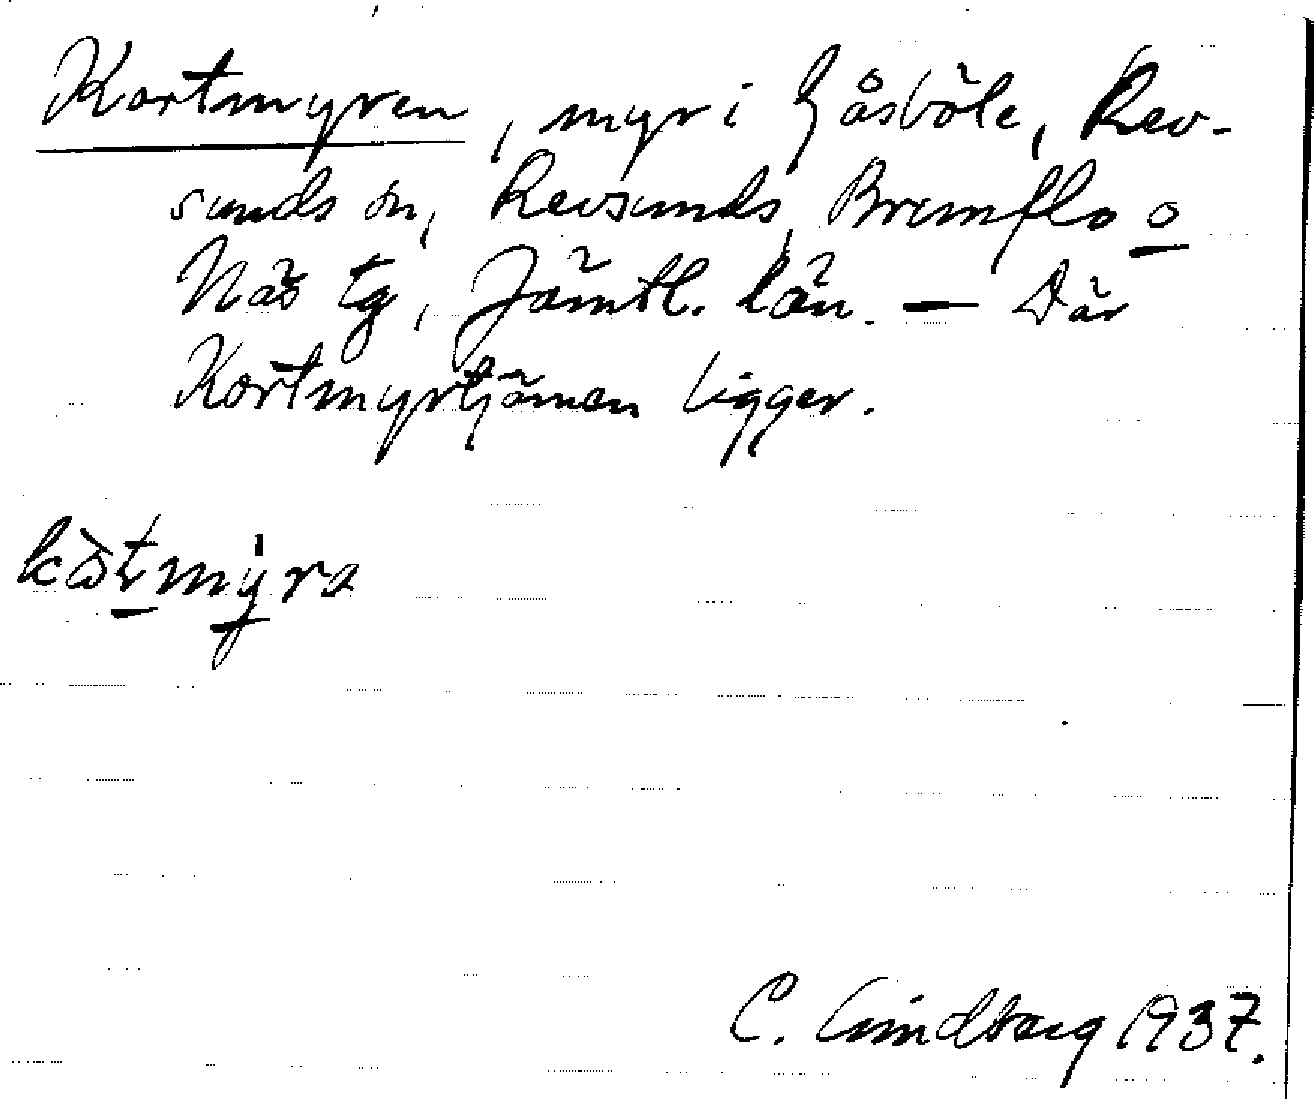 Kortmyren, myr i Gåsböle, Rev-
sunds sn, Revsunds, Brunflo o
Näs tg, Jämtl. län. — Där
Kortmyrtjärnen ligger.
C. Lindberg 1937.